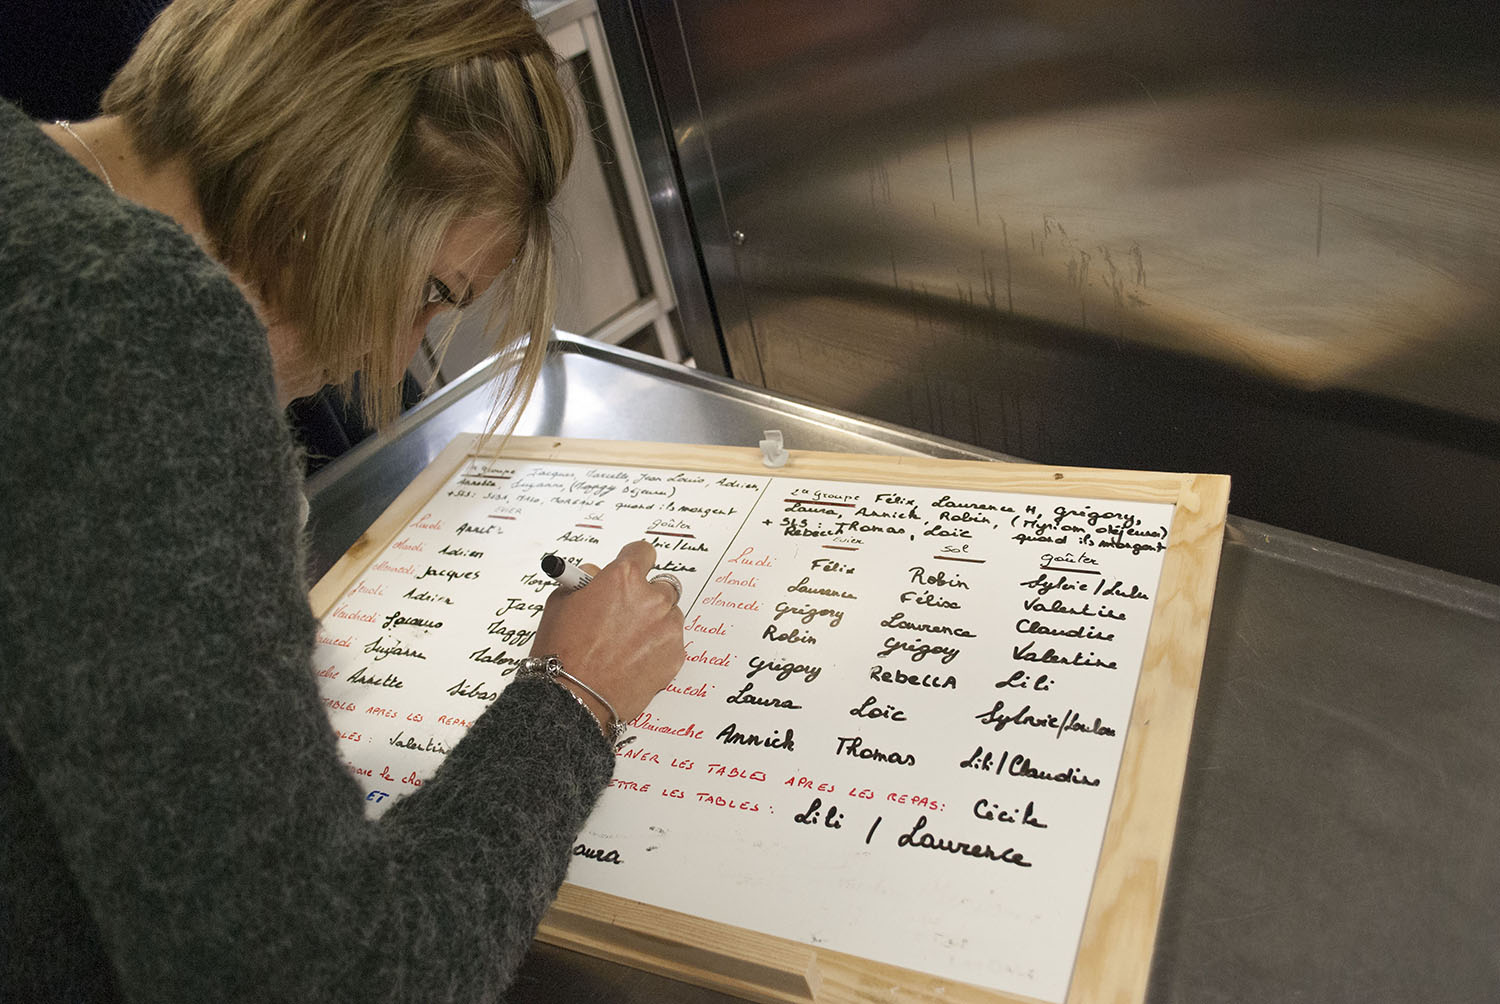 groupe Jacques, Marcelle, Jean Louis, Adrien,
Annette, Suzanne, (Maggy Déjeuner)
+ SLS: SEBA, MALO, MORGANE quand ils mangent
EVIER Sol goûter
Lundi Adrien /Lulu
Mardi Adrien
Mercredi Jacques
Jeudi Adrien
Vendredi Maggy
Suzanne Malory
Annette Sébas
TABLES APRÈS LES REPAS
: Valentin
le
ET
2e groupe Félix, Laurence H, Grégory,
Laura, Annick, Robin, (Myriam déjeuner)
+ SLS: Thomas, Loïc quand ils mangent
Rebecca
évier Sol goûter
Lundi Félix Robin Sylvie/Lulu
Mardi Laurence Félix Valentine
Mercredi Grégory Laurence Claudine
Jeudi Robin Grégory Valentine
Vendredi Grégory Rebecca Lili
Laura Loïc Sylvie/Loulou
Dimanche Annick Thomas Lili/Claudine
LAVER LES TABLES APRES LES REPAS: Cécile
METTRE LES TABLES: Lili / Laurence
aura